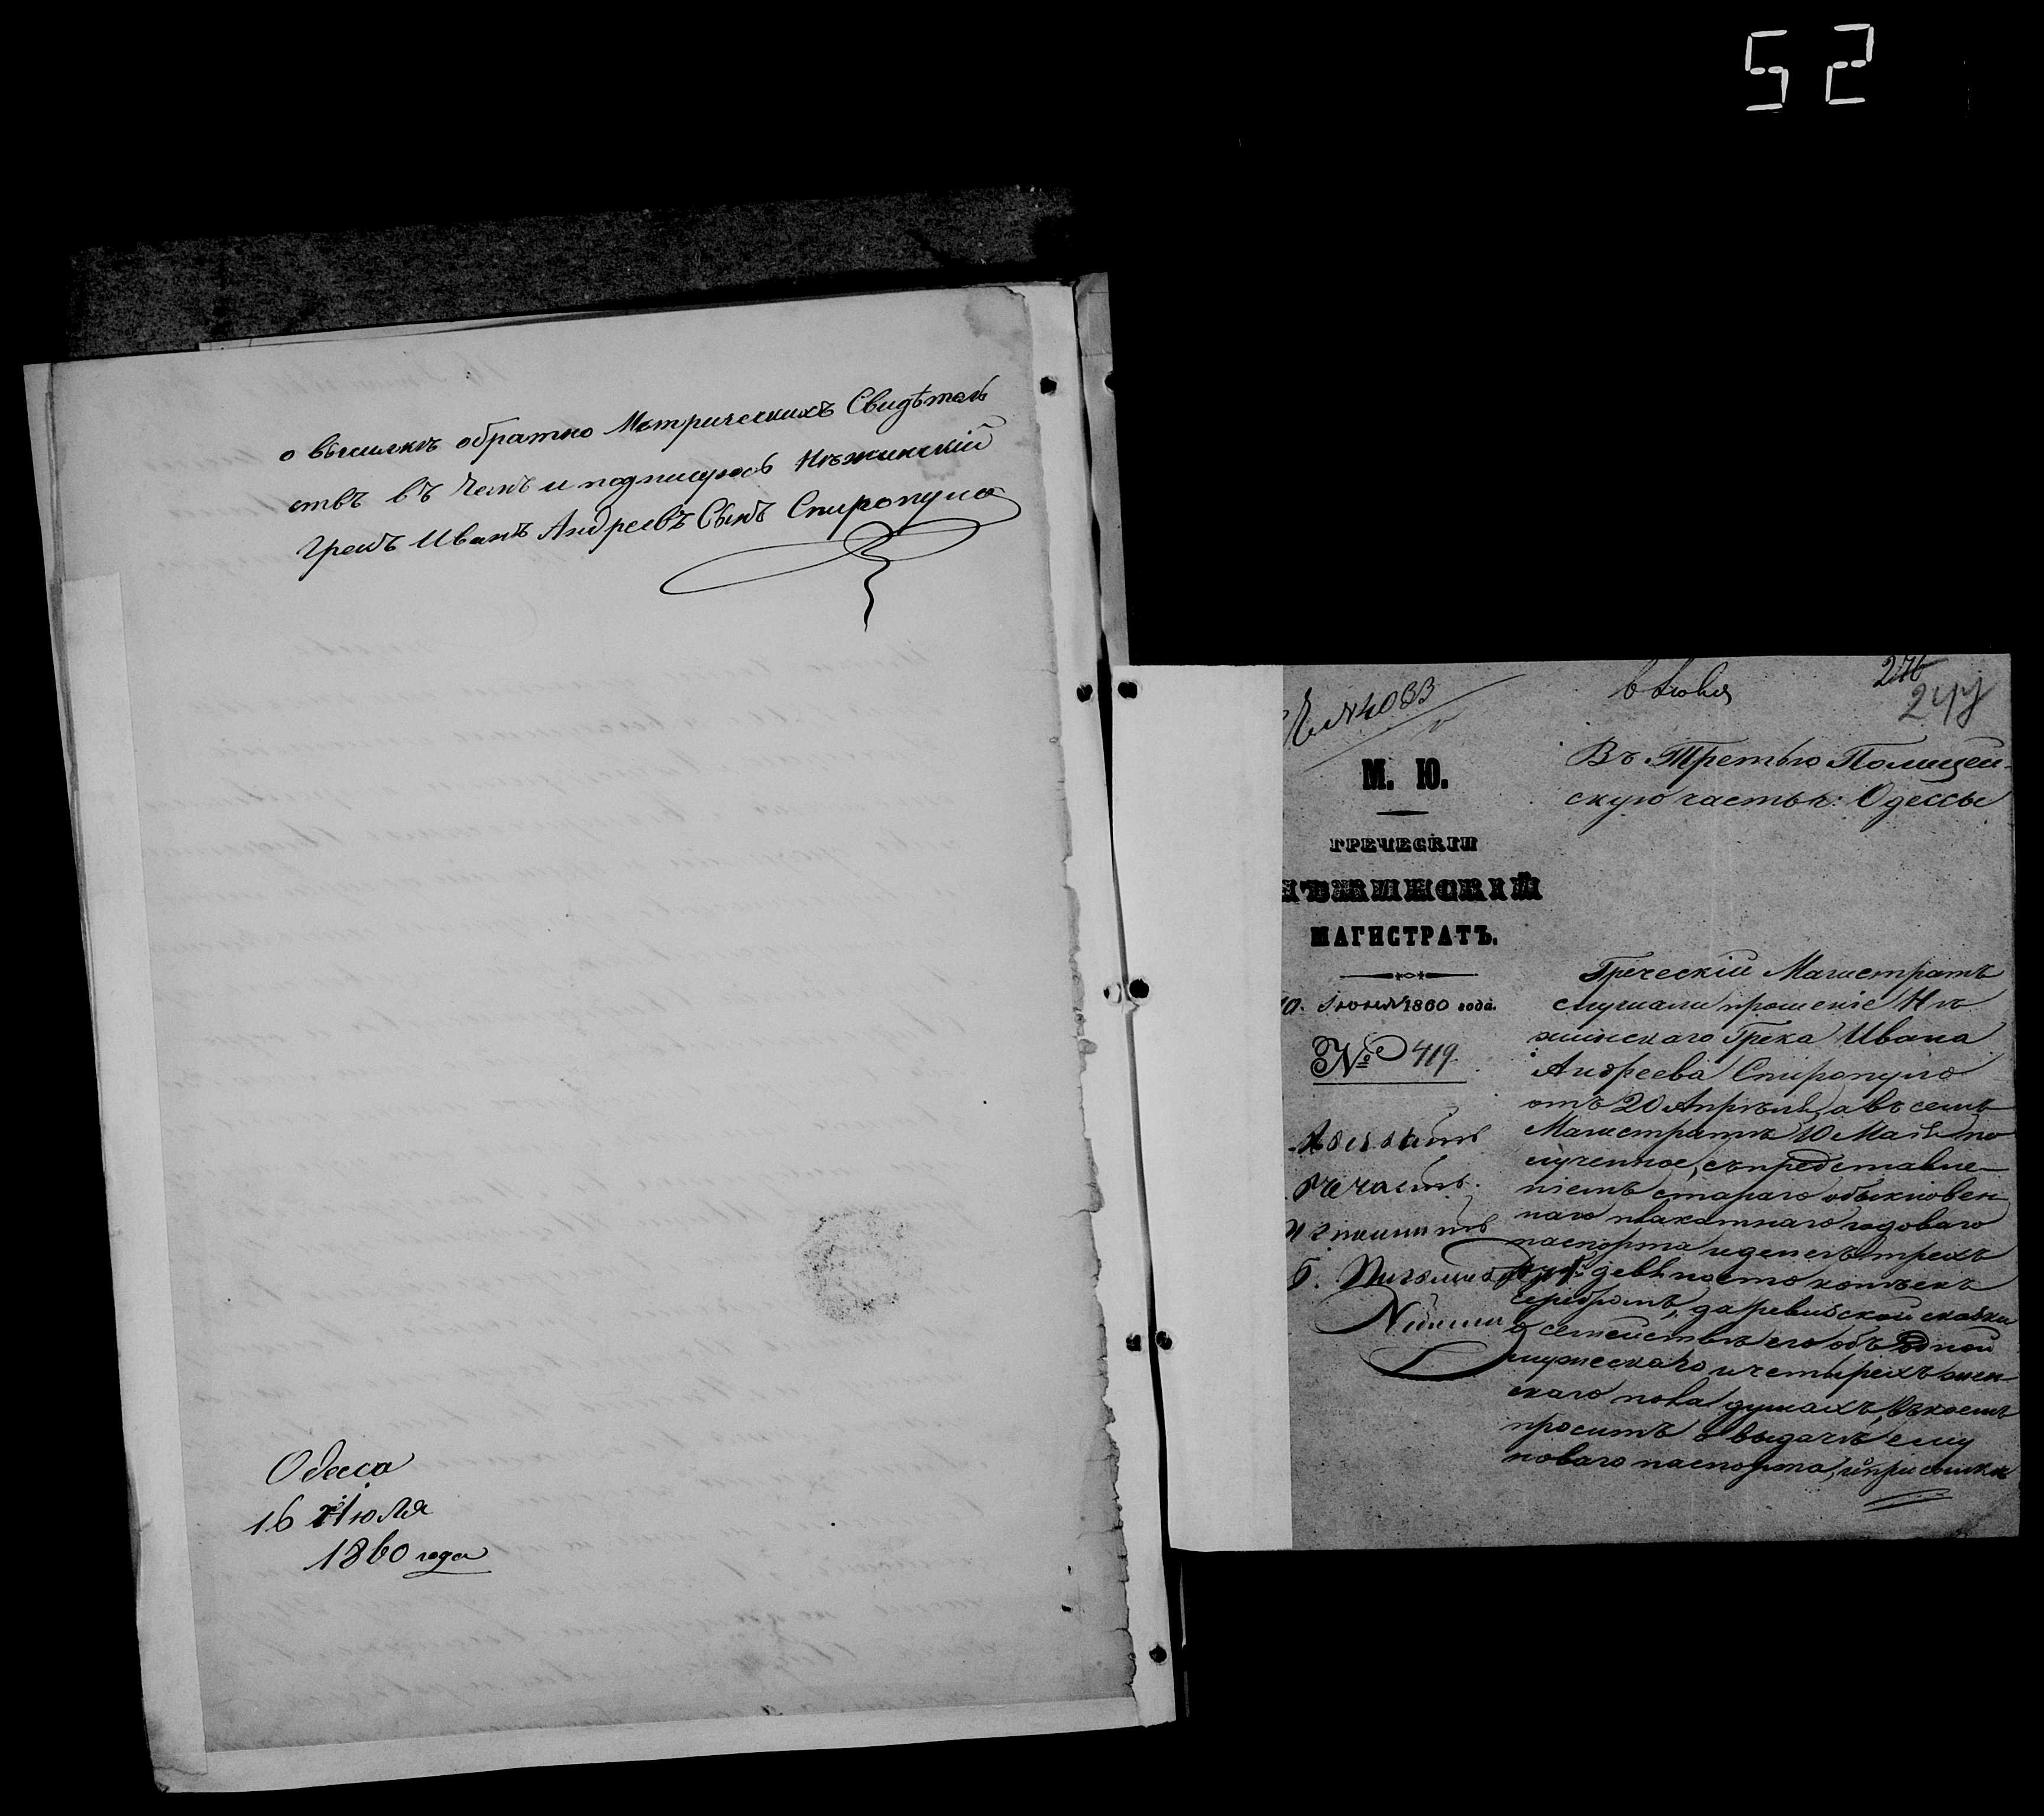 52
о высылкѣ обратно Метрическихъ Свидѣтель
ствъ въ чемъ и подписуюсь Нѣжинскій
Грекъ Иванъ Андреевъ Сынъ Спиропуло
Одесса
16 Июля
1860 года
№ 4033
276
М. Ю.
ГРЕЧЕСКІЙ
НѢЖИНСКІЙ
МАГИСТРАТЪ.
10. Іюня 1860 года.
№ 419.
Въ Третью Полицей-
скую часть г: Одессы
Греческій Магистратъ
слушали прошеніе Нѣ
жинскаго Грека Ивана
Андреева Спиропуло
отъ 20 Апрѣля, а въ семъ
Магистратѣ 10 Маія по
лученное, съ представле-
ніемъ стараго обыкновен
наго плакатнаго годоваго
паспорта и денегъ трехъ
руб: девяносто копѣекъ
серебромъ, да ревизской сказки
о семействѣ его объ одной
мужескаго и четырехъ жен-
скаго пола душахъ, въ коемъ
проситъ о выдачѣ ему
новаго паспорта, и при сылкѣ